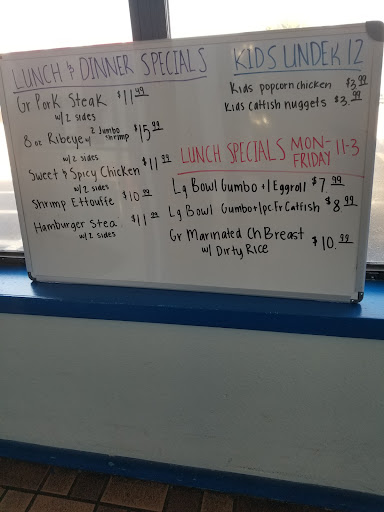 LUNCH & DINNER SPECIALS
Gr Pork Steak $11.99
w/2 sides
8 oz Ribeye w/ 2 Jumbo shrimp $15.99
w/2 sides
Sweet & Spicy Chicken $11.99
w/2 sides
Shrimp Ettouffe $10.99
Hamburger Stea $11.99
w/2 sides
KIDS UNDER 12
Kids popcorn chicken $3.99
Kids Catfish nuggets $3.99
LUNCH SPECIALS MON-FRIDAY 11-3
Lg Bowl Gumbo + 1 Eggroll $7.99
Lg Bowl Gumbo + 1pc Fr Catfish $8.99
Gr Marinated Ch Breast $10.99
w/ Dirty Rice